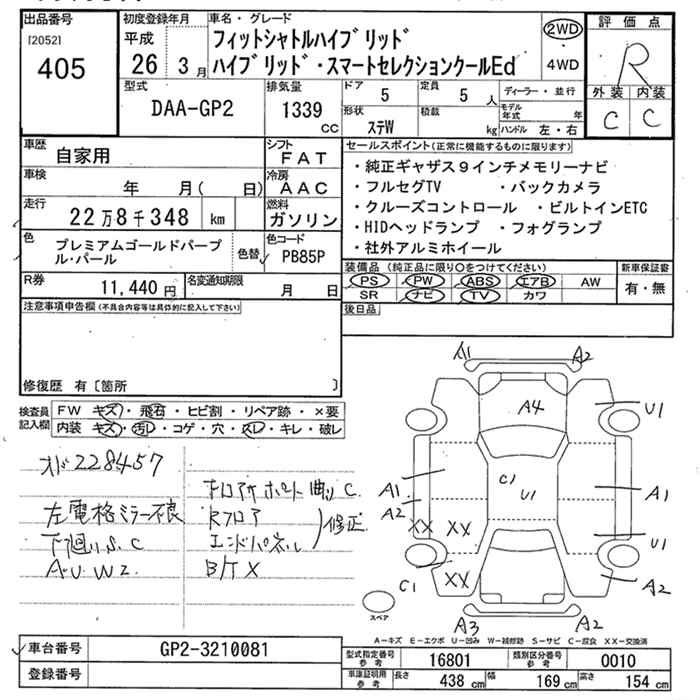 出品番号
[2052]
405
初度登録年月
平成
26 3月
車名・グレード
フィットシャトルハイブリッド
ハイブリッド・スマートセレクションクールEd
2WD
・4WD
評価点
R
外装 内装
C C
型式
DAA-GP2
排気量
1339 cc
ドア 5
定員 5 人
ディーラー・並行
形状 ステW
積載 kg
モデル年式 年
ハンドル 左・右
車歴 自家用
シフト FAT
車検 年 月( 日)
冷房 AAC
走行 22万8千348 km
燃料 ガソリン
色 プレミアムゴールドパープル・パール
色替
色コード PB85P
R券 11,440円
名変通知期限 月 日
セールスポイント(正常に機能するものに限ります)
・純正ギャザス9インチメモリーナビ
・フルセグTV ・バックカメラ
・クルーズコントロール ・ビルトインETC
・HIDヘッドランプ ・フォグランプ
・社外アルミホイール
装備品(純正品に限り○をつけてください)
新車保証書
PS PW ABS エアB AW
SR ナビ TV カワ
有・無
後日品
注意事項申告欄(不具合内容等は具体的に記入して下さい)
修復歴 有〔箇所 〕
検査員記入欄
FW キズ・飛石・ヒビ割・リペア跡・×要
内装 キズ・汚レ・コゲ・穴・スレ・キレ・破レ
228457
左電格ミラー不良
下廻りS.C
A.U.W2.
フロアサポート曲りC
Rフロア
エンドパネル
修正
A1 A2
A4
U1
C1
U1
A1
A2
A1
XX XX
U1
XX
C1
A2
A3 A2
スペア
A-キズ E-エクボ U-凹み W-補修跡 S-サビ C-腐食 XX-交換済
車台番号 GP2-3210081
登録番号
型式指定番号参考 16801
類別区分番号参考 0010
車庫証明用参考 長さ 438 cm 幅 169 cm 高さ 154 cm